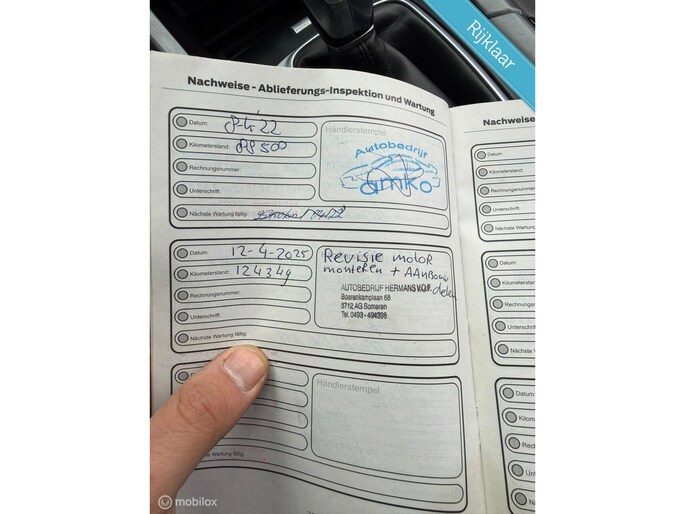 Rijklaar
Nachweise - Ablieferungs-Inspektion und Wartung
Datum:
Kilometerstand:
Rechnungsnummer:
Unterschrift:
Nächste Wartung fällig:
Händlerstempel
Autobedrijf
amko
Datum: 12-4-2025
Kilometerstand: 124349
Rechnungsnummer:
Unterschrift:
Nächste Wartung fällig:
Revisie motor
monteren + AANBOUW
delen
AUTOBEDRIJF HERMANS V.O.F.
Boerenkamplaan 68
5712 AG Someren
Tel. 0493-494398
Händlerstempel
Wartung fällig:
Nachweise
Datum:
Kilometerstand:
Rechnungsnummer:
Unterschrift:
Nächste Wartung
Datum:
Kilometerstand:
Rechnungs
Unterschrift
Nächste W
Datum:
Kilom
Rech
Unt
mobilox